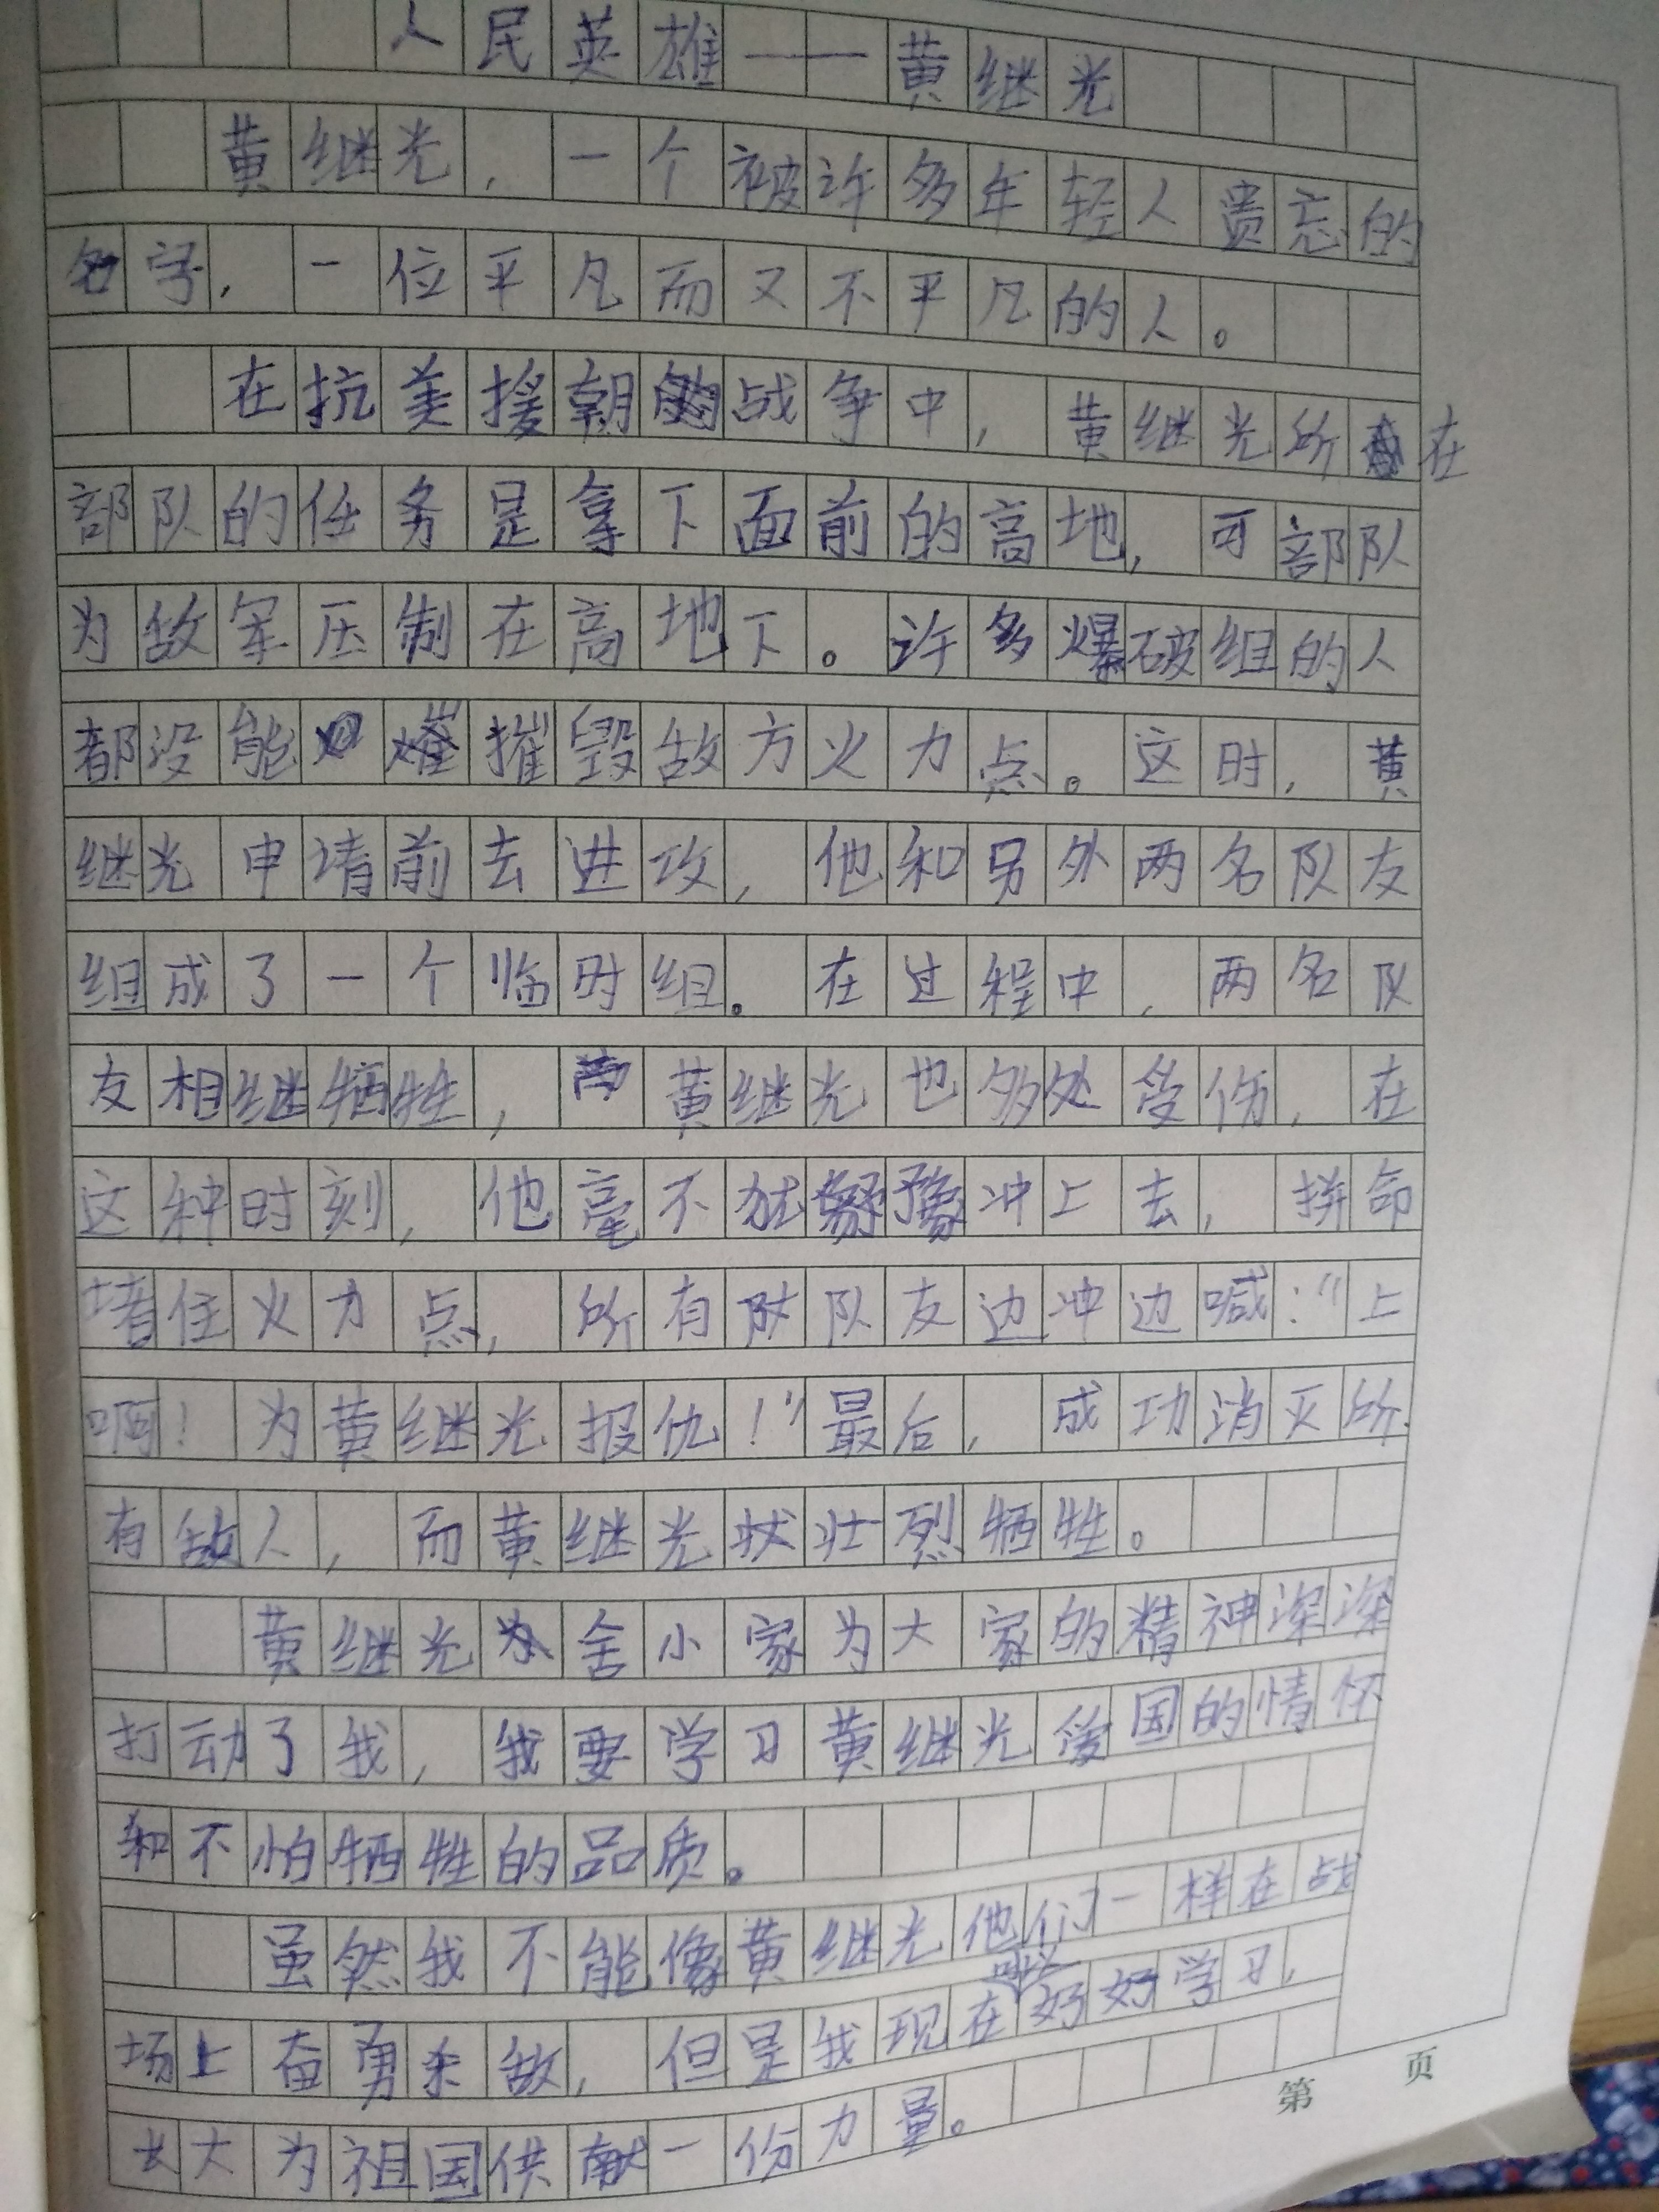 人民英雄——黄继光
黄继光，一个被许多年轻人遗忘的
名字，一位平凡而又不平凡的人。
在抗美援朝战争中，黄继光所在
部队的任务是拿下面前的高地，可部队
为敌军压制在高地下。许多爆破组的人
都没能摧毁敌方火力点。这时，黄
继光申请前去进攻，他和另外两名队友
组成了一个临时组。在过程中，两名队
友相继牺牲，黄继光也多处受伤，在
这种时刻，他毫不犹豫冲上去，拼命
堵住火力点，所有队友边冲边喊："上
啊！为黄继光报仇！"最后，成功消灭所
有敌人，而黄继光壮烈牺牲。
黄继光舍小家为大家的精神深深
打动了我，我要学习黄继光爱国的情怀
和不怕牺牲的品质。
虽然我不能像黄继光他们一样在战
场上奋勇杀敌，但是我现在好好学习，
长大为祖国供献一份力量。
第 页